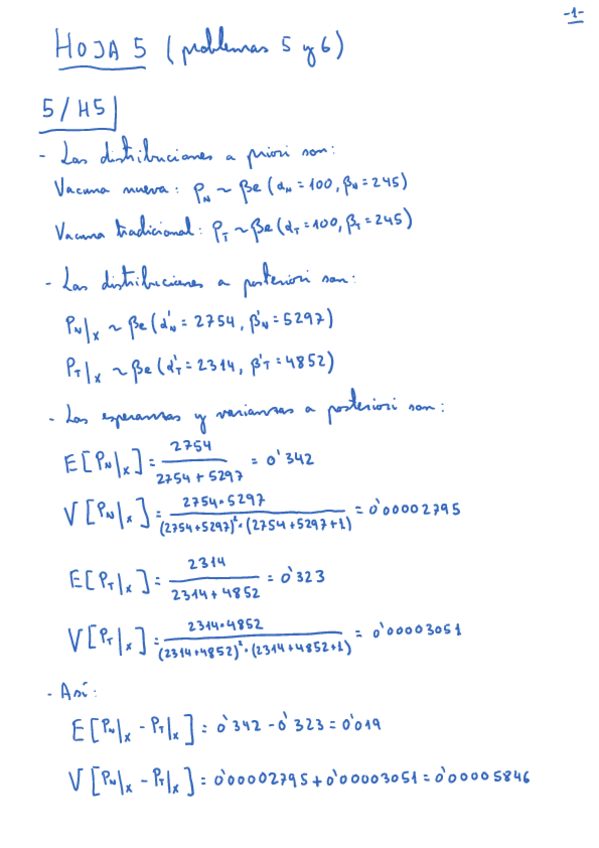 -1-
HOJA 5 (problemas 5 y 6)
5/H5
- Las distribuciones a priori son:
Vacuna nueva: P_N ~ Be(α_N = 100, β_N = 245)
Vacuna tradicional: P_T ~ Be(α_T = 100, β_T = 245)
- Las distribuciones a posteriori son:
P_N|x ~ Be(α'_N = 2754, β'_N = 5297)
P_T|x ~ Be(α'_T = 2314, β'_T = 4852)
- Las esperanzas y varianzas a posteriori son:
E[P_N|x] = 2754 / (2754 + 5297) = 0'342
V[P_N|x] = 2754·5297 / ((2754+5297)²·(2754+5297+1)) = 0'00002795
E[P_T|x] = 2314 / (2314 + 4852) = 0'323
V[P_T|x] = 2314·4852 / ((2314+4852)²·(2314+4852+1)) = 0'00003051
- Así:
E[P_N|x - P_T|x] = 0'342 - 0'323 = 0'019
V[P_N|x - P_T|x] = 0'00002795 + 0'00003051 = 0'00005846